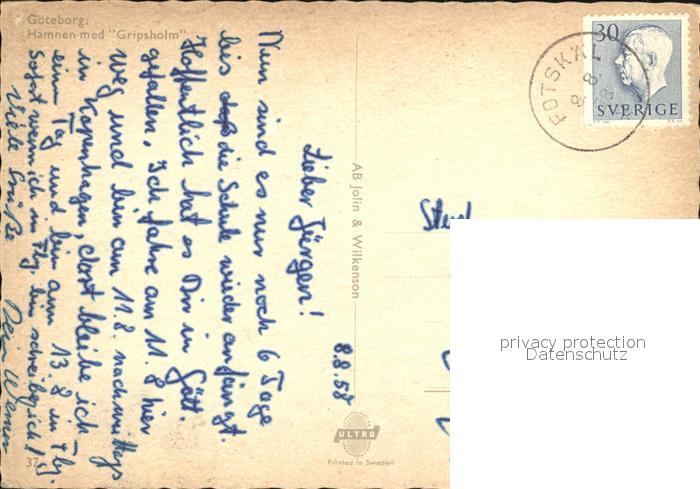 Göteborg.
Hamnen med "Gripsholm"
8.8.58
Lieber Jürgen!
Nun sind es nur noch 6 Tage
bis die Schule wieder anfängt.
Hoffentlich hat es Dir in Gött.
gefallen. Ich fahre am 11.8 hier
weg und bin am 11.8. nachmittags
in Kopenhagen, dort bleibe ich
einen Tag und bin am 13.8 in Flg.
Sofort wenn ich in Flg. bin schreibe ich!
Viele Grüße Dein
AB Jolin & Wilkenson
ULTRA
Printed in Sweden
37
30
SVERIGE
FOTSKÄL
8. 8.
privacy protection
Datenschutz